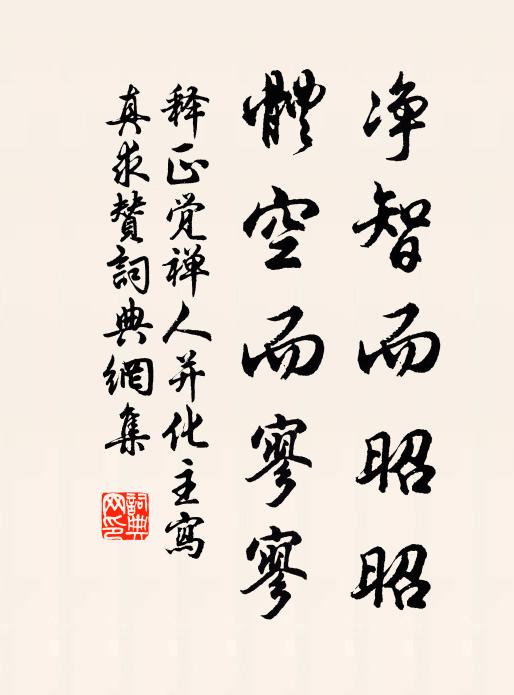 净智而昭昭
體空而寥寥
释正觉禅人并化主寫
真求赞詞典網集
詞典网印